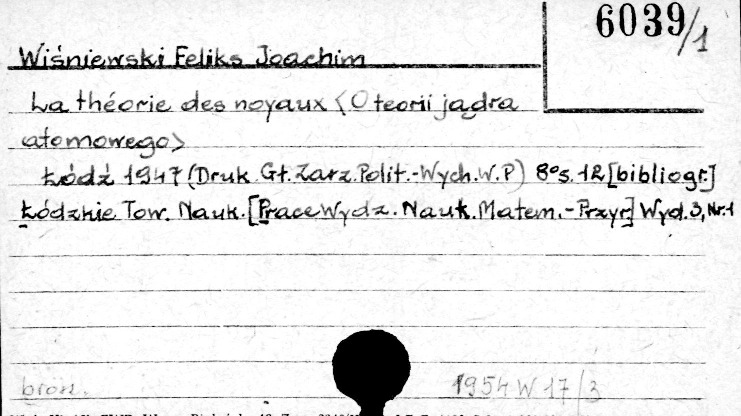 6039/1
Wiśniewski Feliks Joachim
La théorie des noyaux <O teorii jądra
atomowego>
Łódź 1947 (Druk Gł. Zarz. Polit.-Wych. W.P) 8° s. 12 [bibliogr.]
Łódzkie Tow. Nauk. [Prace Wydz. Nauk. Matem.-Przyr] Wyd. 3, Nr. 1
brosz.
1954 W 17/3